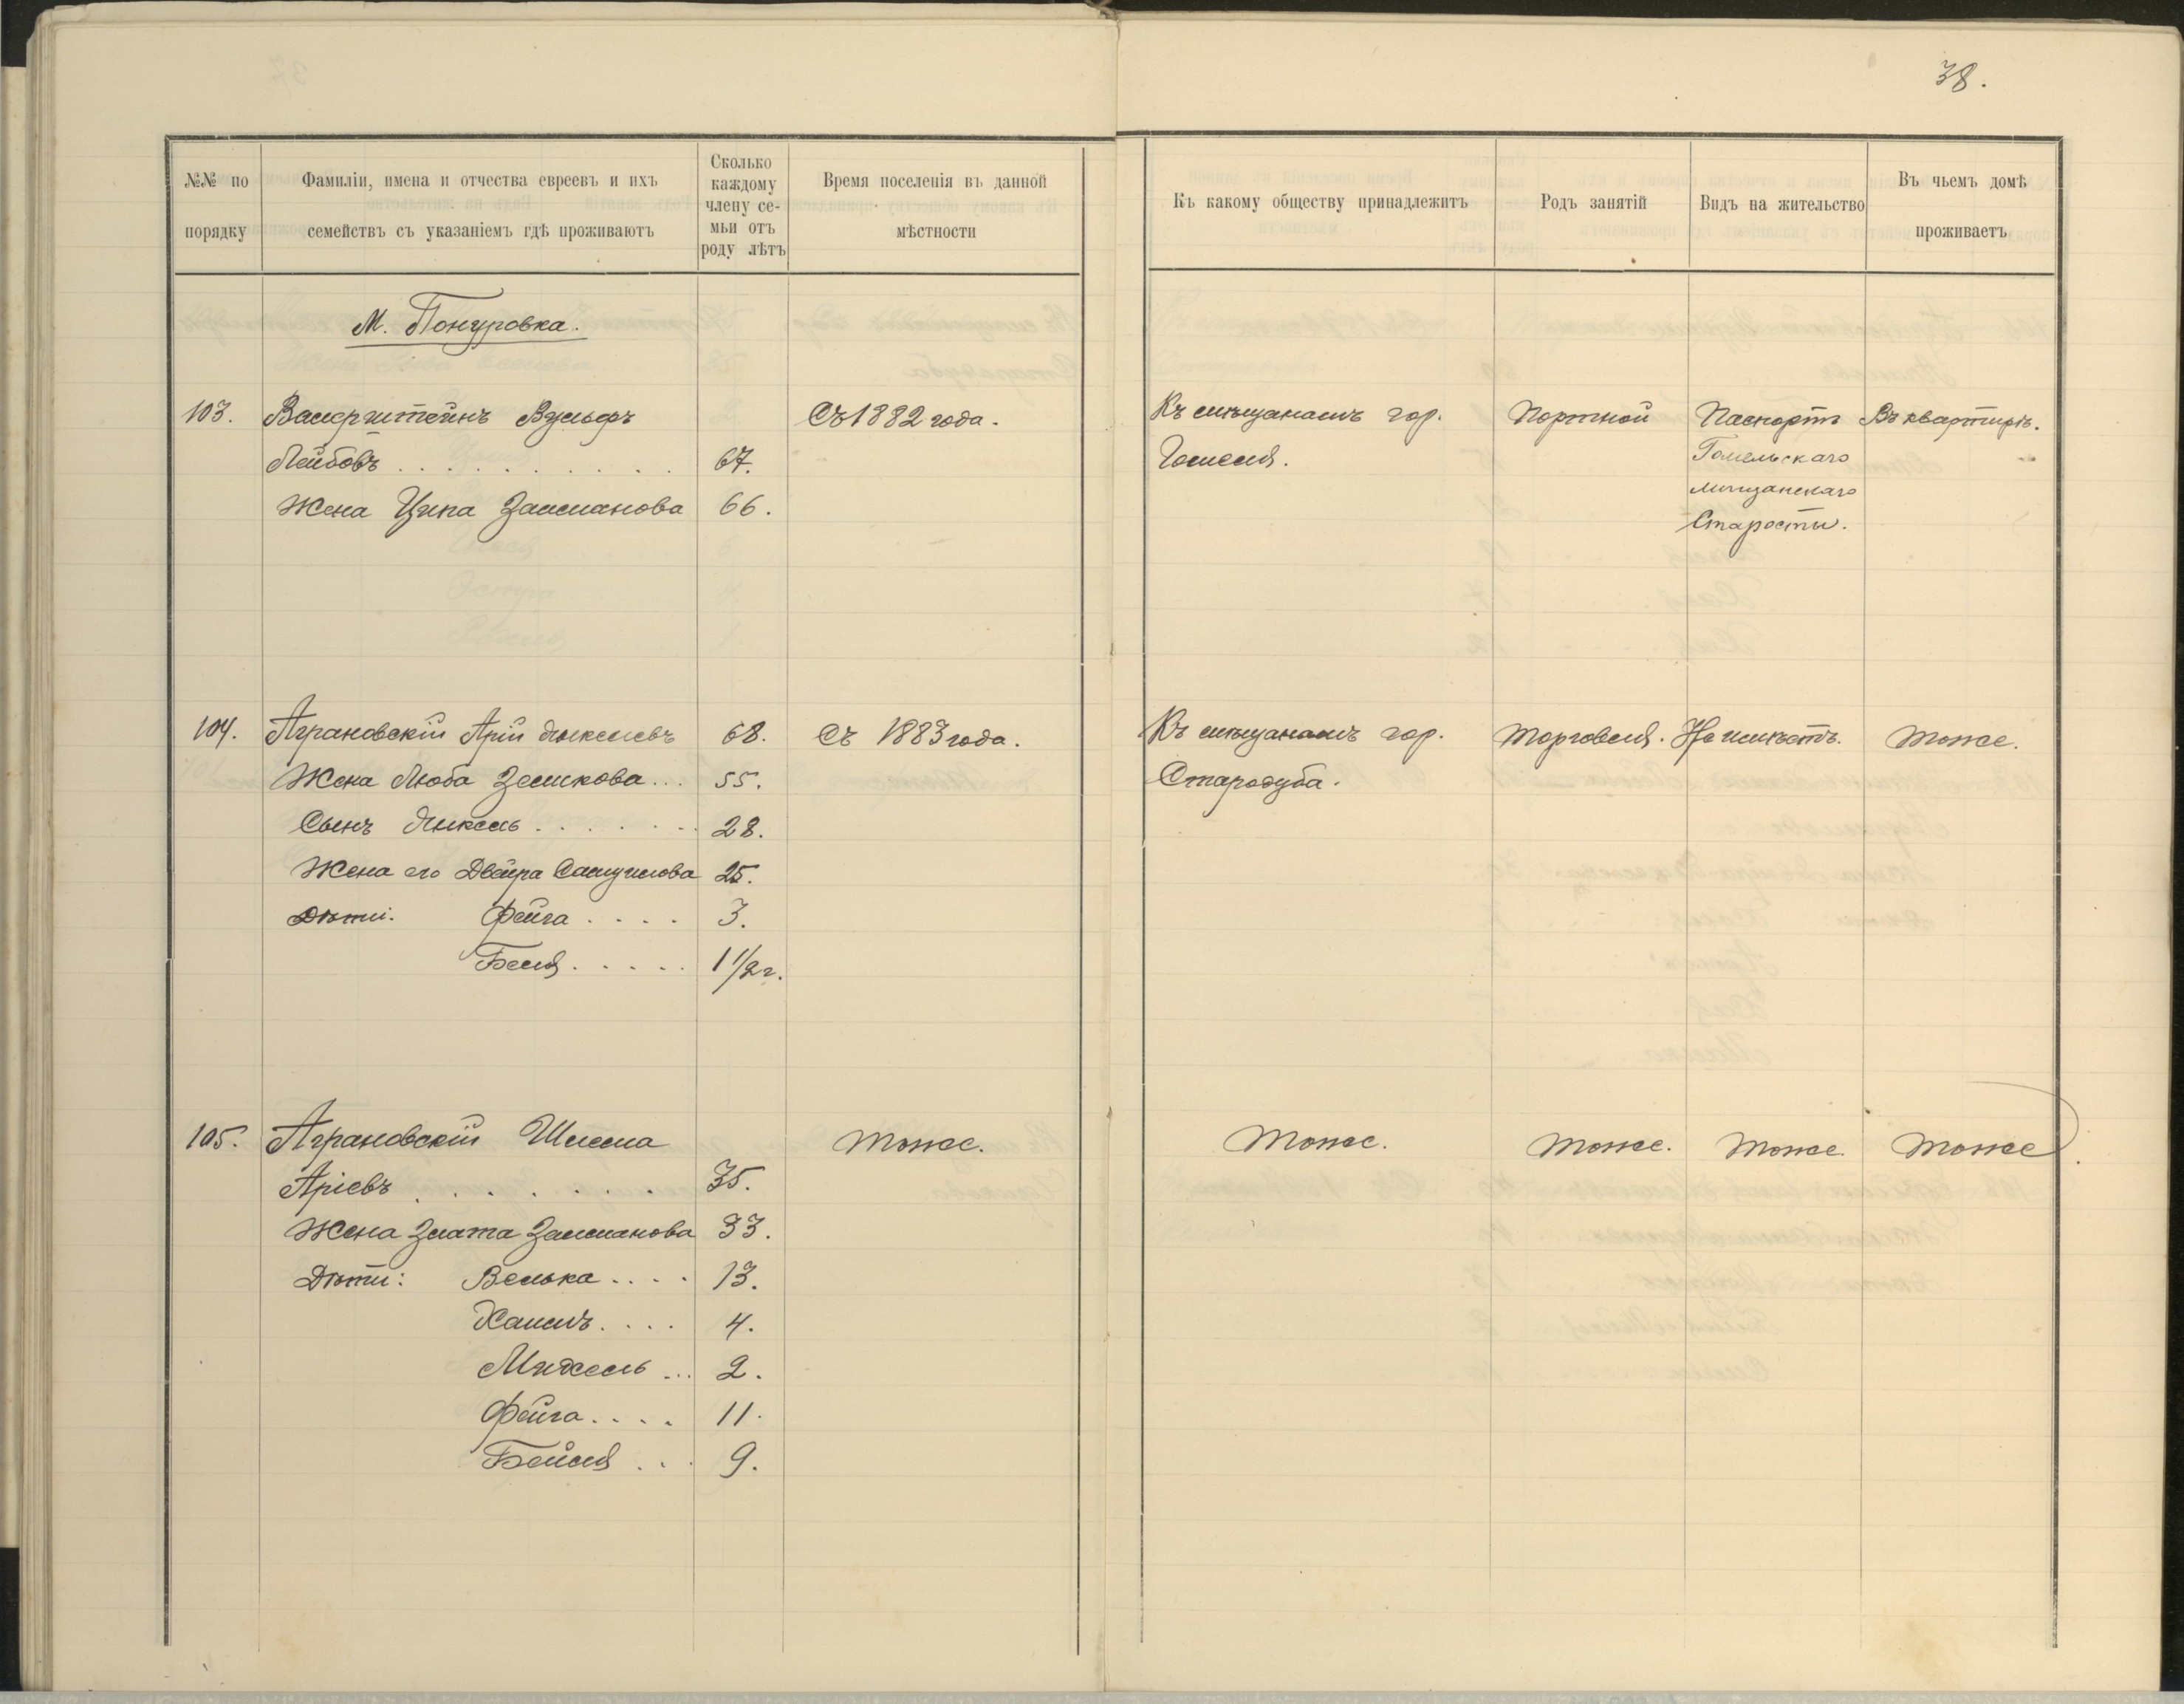 38.
№№ по
порядку
Фамиліи, имена и отчества евреевъ и ихъ
семействъ съ указаніемъ гдѣ проживаютъ
Сколько
каждому
члену се-
мьи отъ
роду лѣтъ
Время поселенія въ данной
мѣстности
Къ какому обществу принадлежитъ
Родъ занятій
Видъ на жительство
Въ чьемъ домѣ
проживаетъ
М. Понуровка.
103. Васерштейнъ Вульфъ Съ 1882 года. Къ мѣщанамъ гор. Портной Паспортъ Въ квартирѣ.
Лейбовъ . . . . . . . . . . 67. Гомеля. Гомельскаго
Жена Ципа Залманова 66. мѣщанскаго
Старосты.
104. Аграновскій Арій 68. Съ 1883 года. Къ мѣщанамъ гор. Торговля. Не имѣетъ. Тоже.
Жена Люба Зеликова... 55. Стародуба.
Сынъ . . . . . . 28.
Жена его Двейра Самуилова 25.
Дѣти: Фейга . . . . 3.
Беля . . . . . 1 1/2 г.
105. Аграновскій Шлема Тоже. Тоже. Тоже. Тоже. Тоже.
Аріевъ . . . . . . . 35.
Жена Злата Залманова 33.
Дѣти: Велька . . . . 13.
Хаимъ . . . . 4.
Михель ... 2.
Фейга . . . . 11.
Бейля . . . 9.